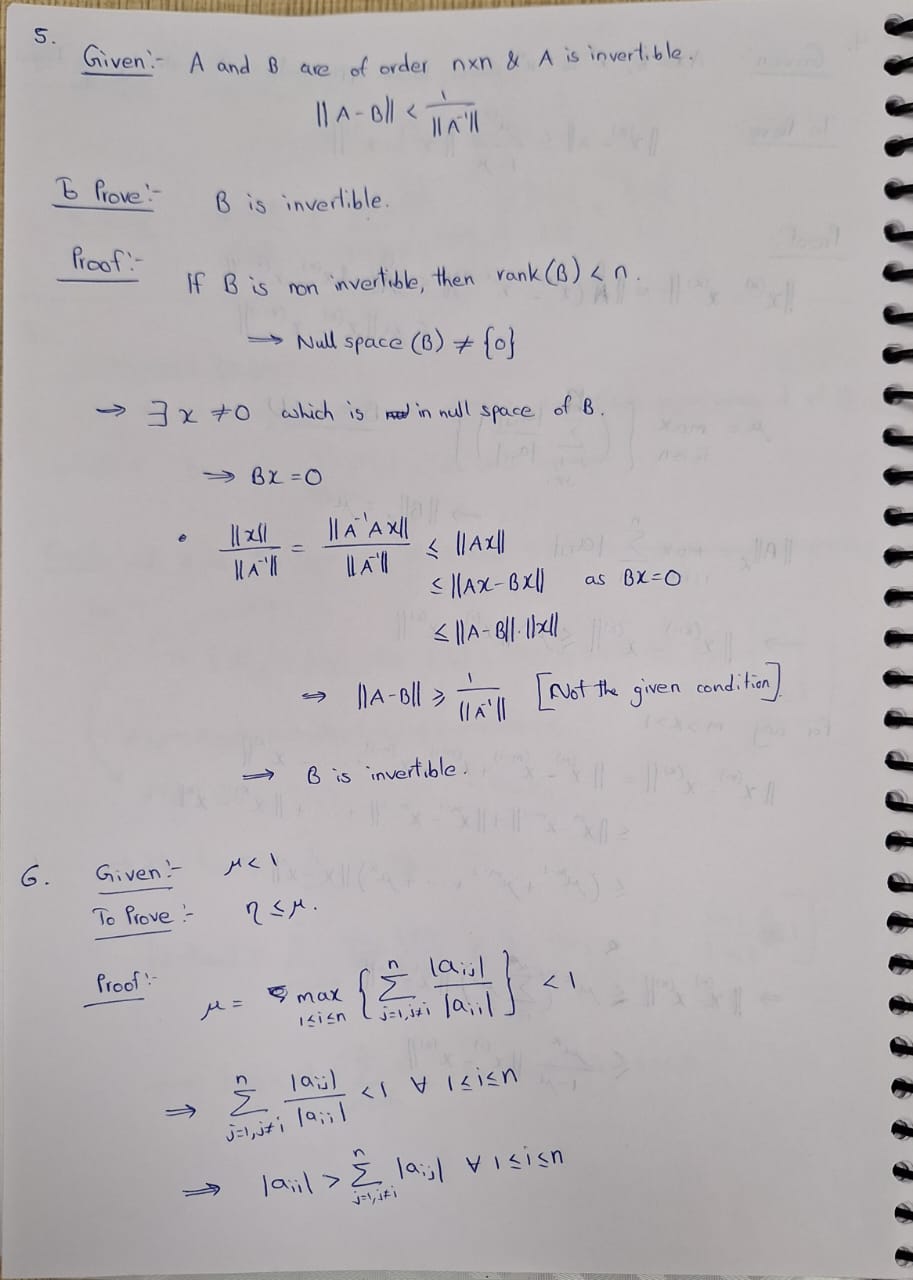 5.
Given:- A and B are of order n×n & A is invertible.
||A-B|| < 1/||A⁻¹||
To Prove:- B is invertible.
Proof:-
If B is non invertible, then rank(B) < n.
⇒ Null space (B) ≠ {0}
⇒ ∃ x ≠ 0 which is in null space of B.
⇒ Bx = 0
• ||x||/||A⁻¹|| = ||A⁻¹Ax||/||A⁻¹|| ≤ ||Ax||
≤ ||Ax-Bx|| as Bx=0
≤ ||A-B||.||x||
⇒ ||A-B|| ≥ 1/||A⁻¹|| [Not the given condition]
⇒ B is invertible.
6. Given:- μ<1
To Prove:- η ≤ μ.
Proof:-
μ = max_{1≤i≤n} { Σ_{j=1,j≠i}^{n} |aij|/|aii| } < 1
⇒ Σ_{j=1,j≠i}^{n} |aij|/|aii| < 1 ∀ 1≤i≤n
⇒ |aii| > Σ_{j=1,j≠i}^{n} |aij| ∀ 1≤i≤n